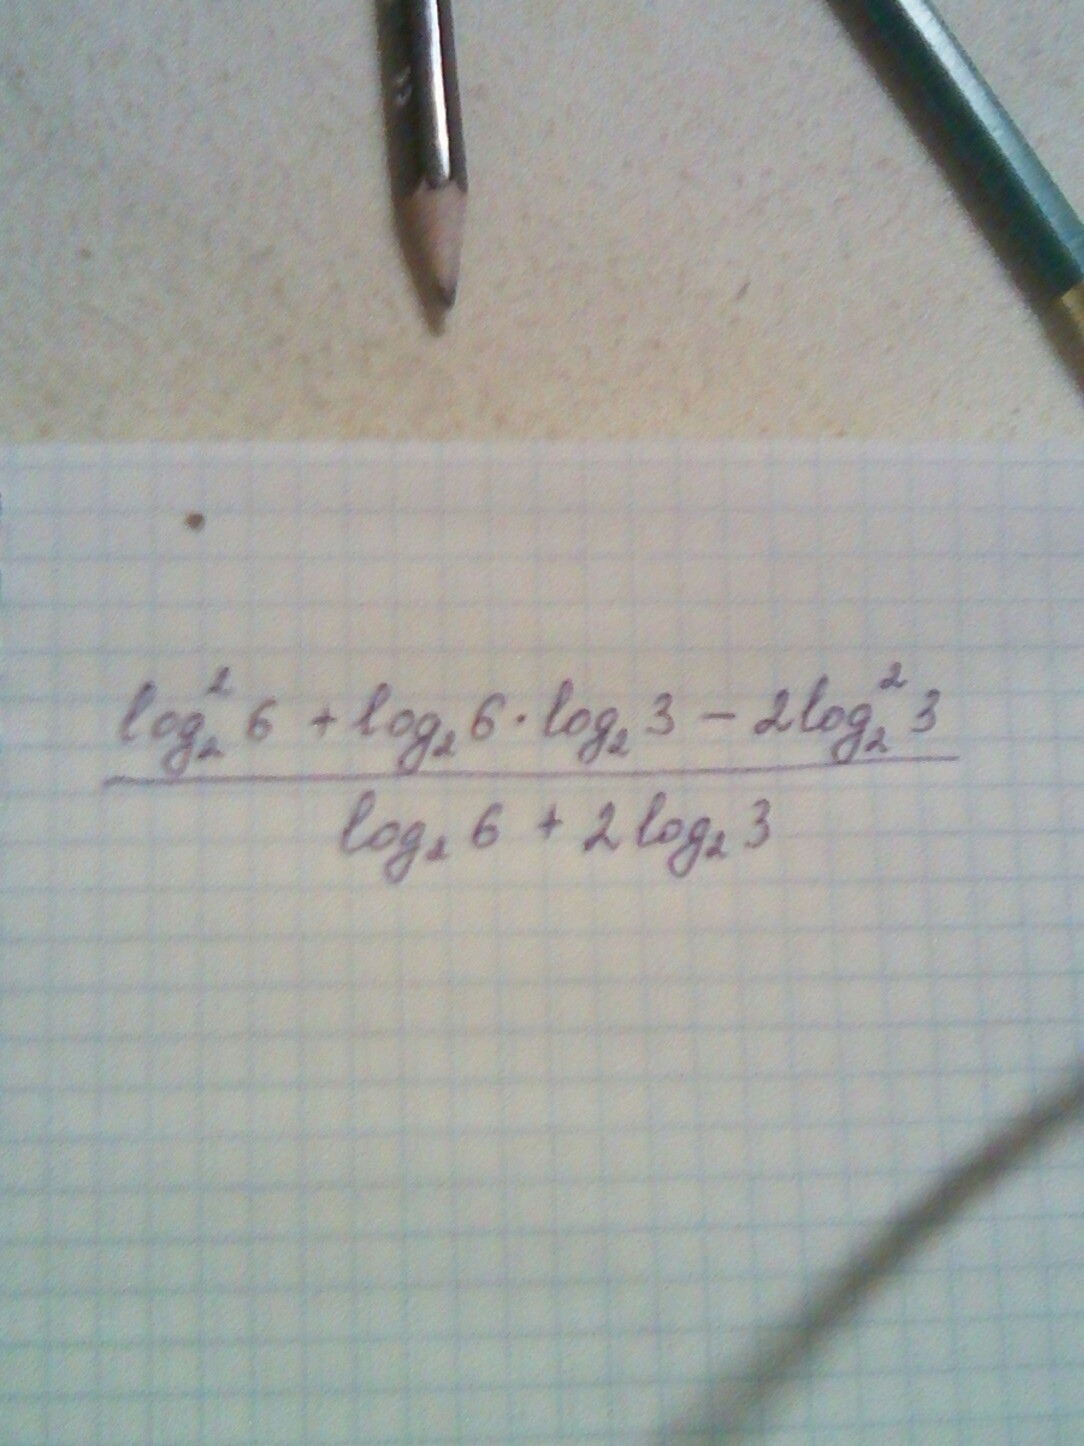 log₂²6 + log₂6·log₂3 − 2log₂²3
log₂6 + 2log₂3